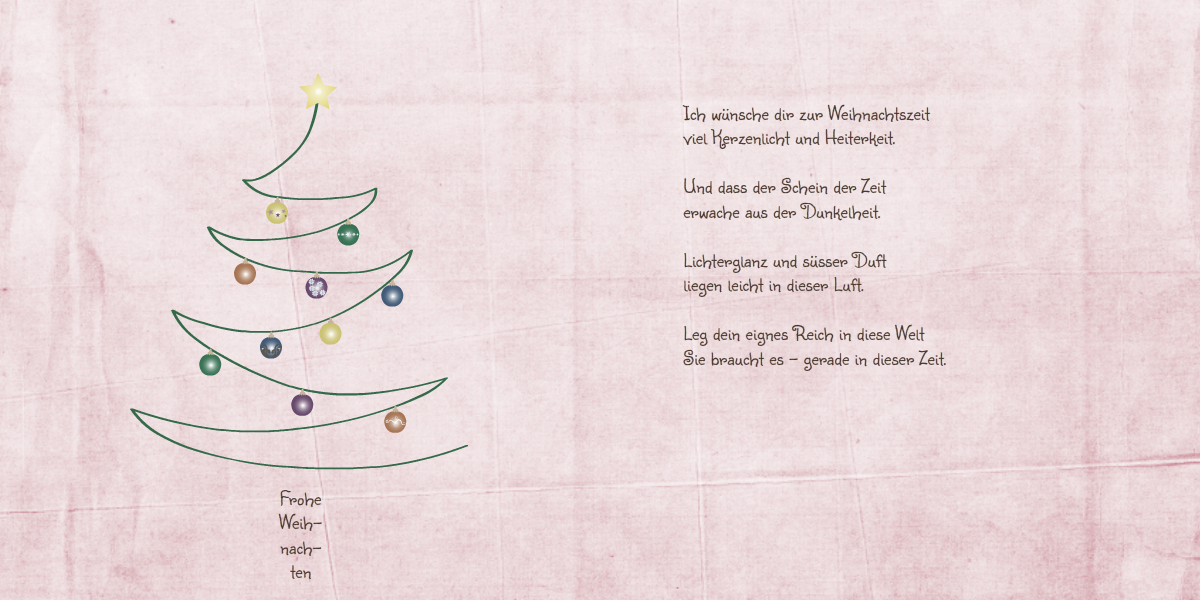 Ich wünsche dir zur Weihnachtszeit
viel Kerzenlicht und Heiterkeit.
Und dass der Schein der Zeit
erwache aus der Dunkelheit.
Lichterglanz und süsser Duft
liegen leicht in dieser Luft.
Leg dein eignes Reich in diese Welt
Sie braucht es – gerade in dieser Zeit.
Frohe
Weih–
nach–
ten